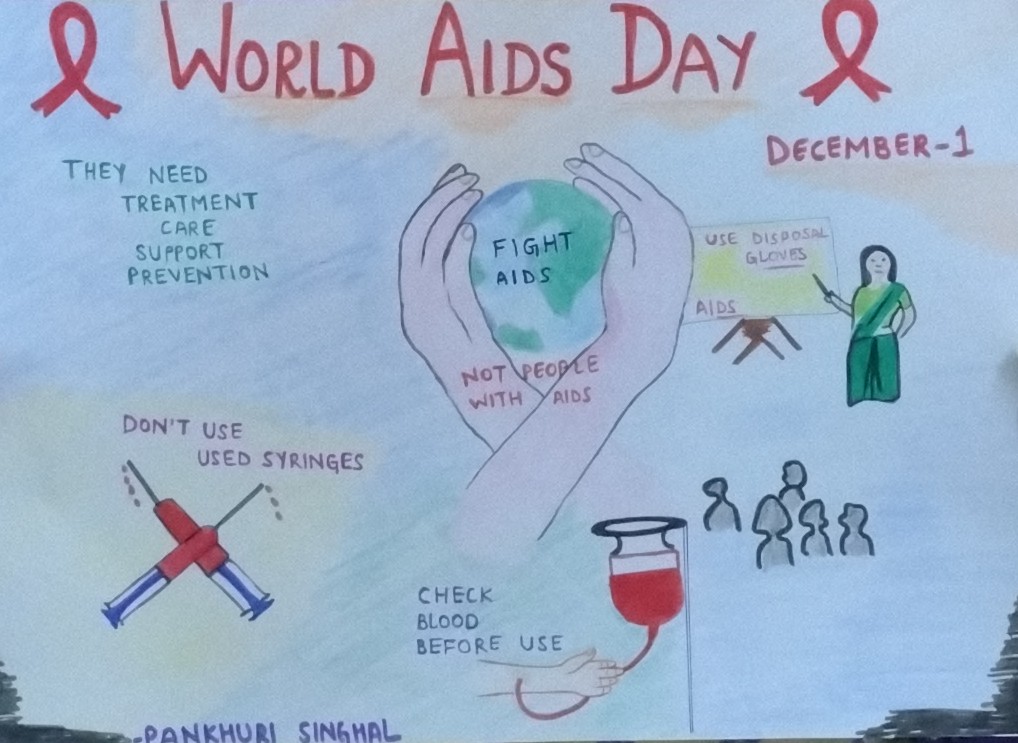 WORLD AIDS DAY
DECEMBER-1
THEY NEED
TREATMENT
CARE
SUPPORT
PREVENTION
FIGHT
AIDS
NOT PEOPLE
WITH AIDS
USE DISPOSAL
GLOVES
AIDS
DON'T USE
USED SYRINGES
CHECK
BLOOD
BEFORE USE
-PANKHURI SINGHAL